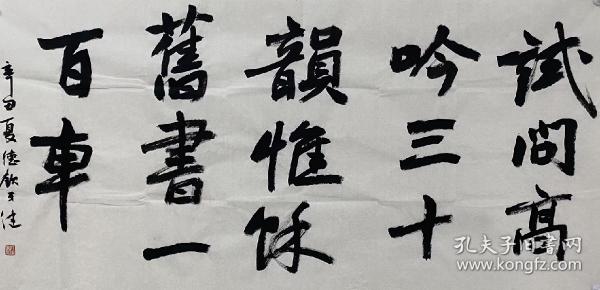 試問高
吟三十
韻惟餘
舊書一
百車
辛丑夏德欽
孔夫子旧书网
www.kongfz.com